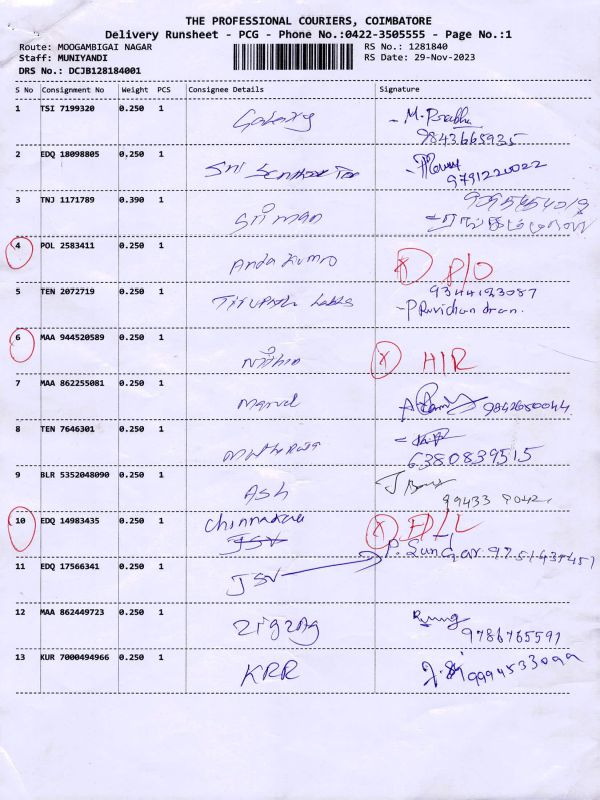 THE PROFESSIONAL COURIERS, COIMBATORE
Delivery Runsheet - PCG - Phone No.:0422-3505555 - Page No.:1
Route: MOOGAMBIGAI NAGAR RS No.: 1281840
Staff: MUNIYANDI RS Date: 29-Nov-2023
DRS No.: DCJB128184001
S No Consignment No Weight PCS Consignee Details Signature
1 TSI 7199320 0.250 1 M. Prabhu
9843665935
2 EDQ 18098805 0.250 1 Sri
9791220022
3 TNJ 1171789 0.390 1 Sriman
4 POL 2583411 0.250 1 Anda
5 TEN 2072719 0.250 1 Tirupathi Labbs 9344123087
P Ravichandran.
6 MAA 944520589 0.250 1 Nithin
7 MAA 862255081 0.250 1 Marvel 9842680044
8 TEN 7646301 0.250 1
6380839515
9 BLR 5352048090 0.250 1 ASh
99433
10 EDQ 14983435 0.250 1
11 EDQ 17566341 0.250 1 JSV P. Sundar 9751439451
12 MAA 862449723 0.250 1 Zigzag
9786765591
13 KUR 7000494966 0.250 1 KRR 9994533099